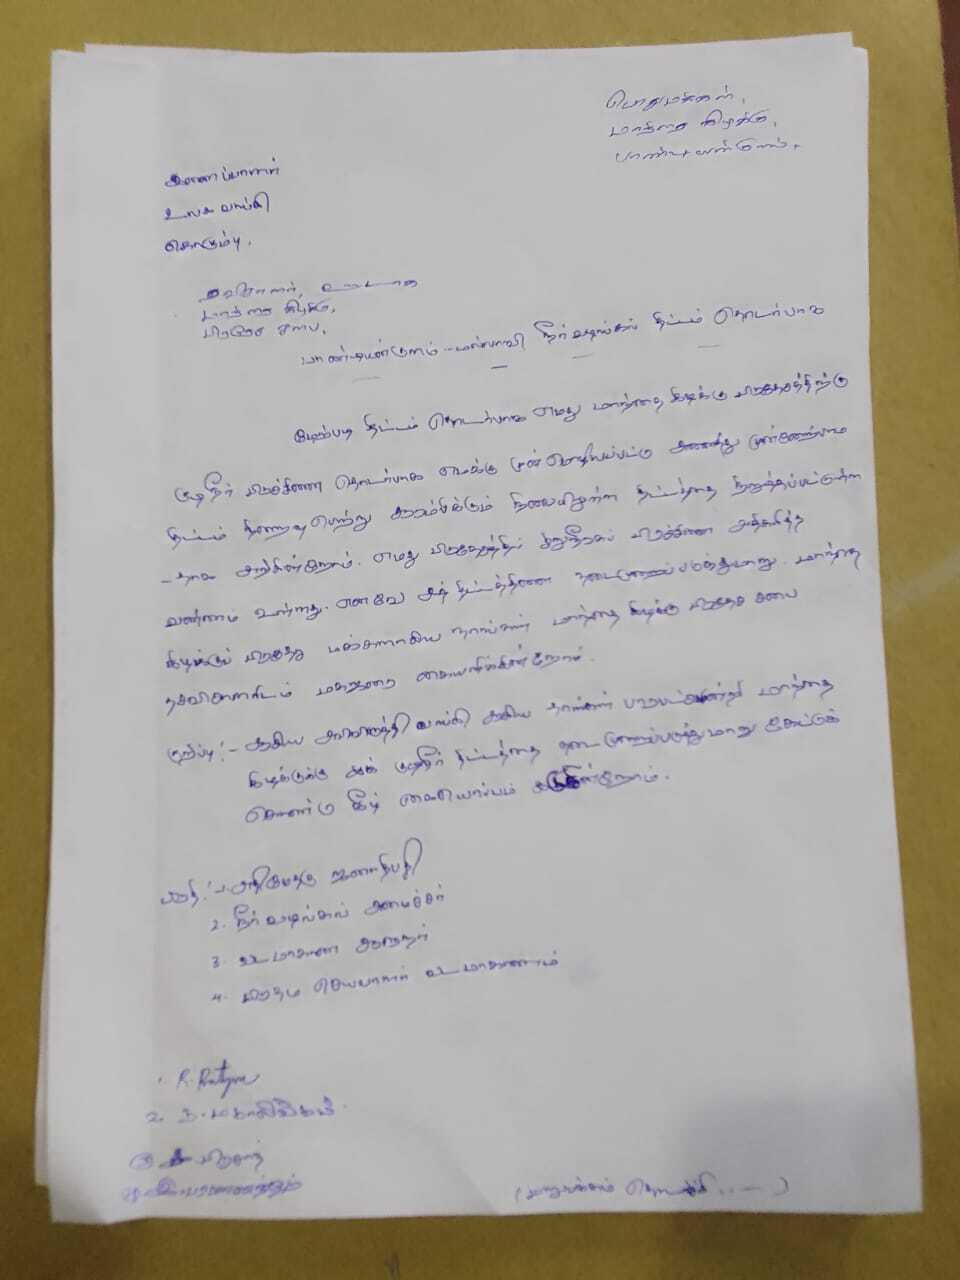 பொதுமக்கள்,
மாந்தை கிழக்கு,
பாண்டியன்குளம்.
இணைப்பாளர்
உலக வங்கி
கொழும்பு.
தவிசாளர், ஊடாக
மாந்தை கிழக்கு,
பிரதேச சபை,
பாண்டியன்குளம் - நீர் வழங்கல் திட்டம் தொடர்பாக
மேற்படி திட்டம் தொடர்பாக எமது மாந்தை கிழக்கு பிரதேசத்திற்கு
குடிநீர் பிரச்சினை தொடர்பாக எமக்கு அனைத்து
திட்டம் ஆரம்பிக்கும் நிலையிலுள்ள திட்டத்தை நிறுத்தப்பட்டுள்ள
-தாக அறிகின்றோம். எமது பிரதேசத்தில் சிறுநீரகப் பிரச்சினை அதிகரித்த
வண்ணம் உள்ளது. எனவே அத் திட்டத்தினை நடைமுறைப்படுத்துமாறு. மாந்தை
கிழக்குப் பிரதேச மக்களாகிய நாங்கள் மாந்தை கிழக்கு பிரதேச சபை
தவிசாளரிடம் மகஜரை கையளிக்கின்றோம்.
குறிப்பு :- ஆசிய அபிவிருத்தி வங்கி ஆகிய நாங்கள் மாந்தை
கிழக்குக்கு குடிநீர் திட்டத்தை நடைமுறைப்படுத்துமாறு கேட்டுக்
கொண்டு கீழ் கையொப்பம் இடுகின்றோம்.
பிரதி :- அதிமேதகு ஜனாதிபதி
2. நீர் வழங்கல் அமைச்சர்
3. வடமாகாண ஆளுநர்
4. பிரதம செயலாளர் வடமாகாணம்
1. R.
2. த. மகாலிங்கம்.
(மறுபக்கம் தொடர்ச்சி..—)